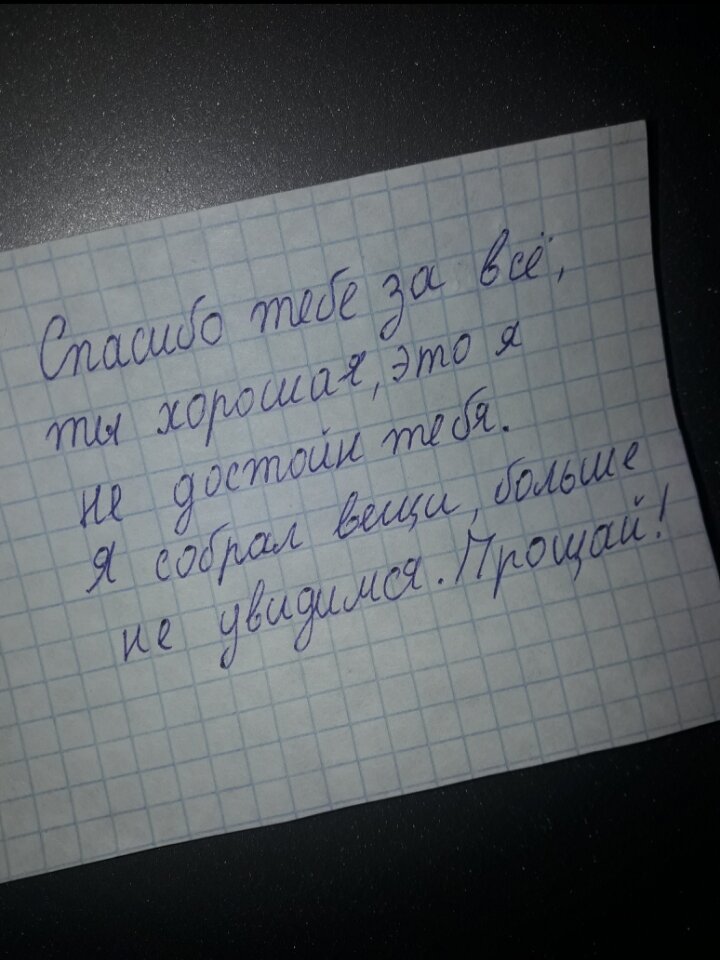 Спасибо тебе за всё,
ты хорошая, это я
не достойн тебя.
Я собрал вещи, больше
не увидимся. Прощай!